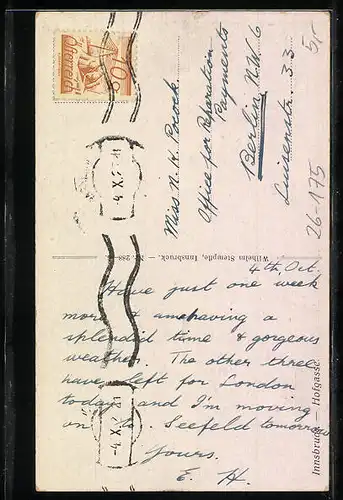 4th, Oct.
Have just one week
more & am having a
splendid time & gorgeous
weather. The other three
have left for London
today and I'm moving
on to Seefeld tomorrow
Yours.
E. H.
Miss N. K. Pocock.
Office for Reparation
Payments
Berlin N.W.6
Luisenstr. 33.
Wilhelm Stempfle, Innsbruck. — Nr. 288
Innsbruck — Hofgasse.
10g
Österreich
4.X.2
4.X.2
5,-
26-1175